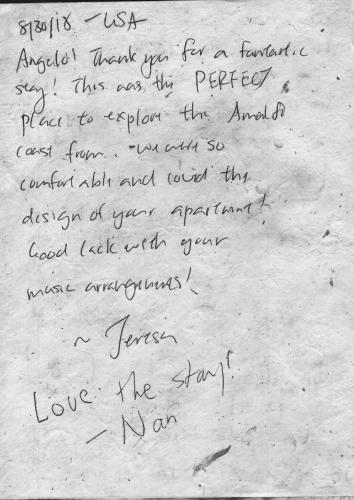 8/30/18 - USA
Angelo! Thank you for a fantastic
stay! This was the PERFECT
place to explore the Amalfi
coast from. We were so
comfortable and loved the
design of your apartment!
Good luck with your
music arrangements!
~ Teresa
Love the stay!
- Nan